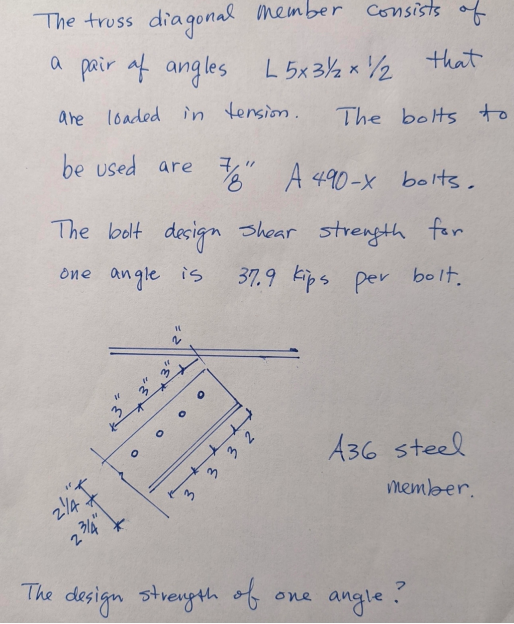 The truss diagonal member consists of
a pair of angles L 5x3½ x ½ that
are loaded in tension. The bolts to
be used are 7/8" A490-X bolts.
The bolt design shear strength for
one angle is 37.9 kips per bolt.
2"
3" 3" 3"
3 3 3 2
2¼"
2¾"
A36 steel
member.
The design strength of one angle?